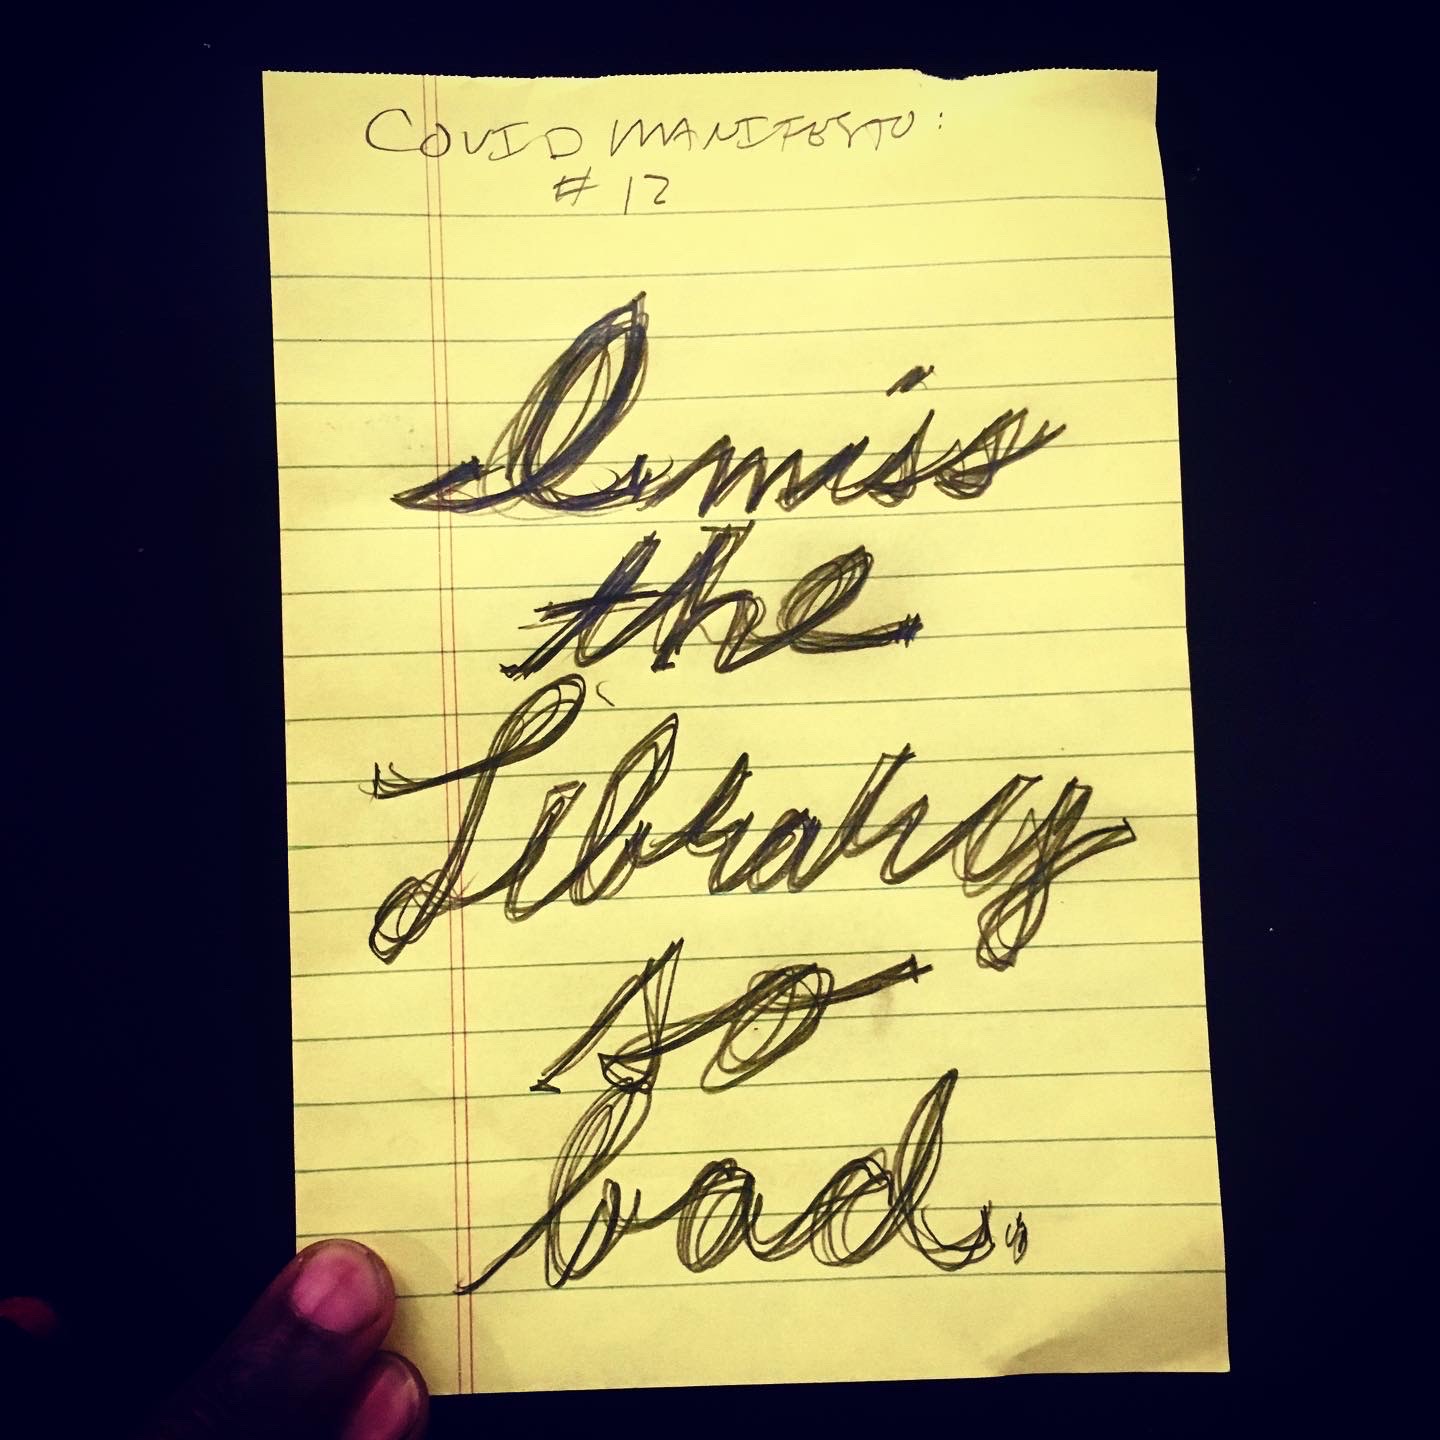 COVID MANIFESTO:
# 12
I miss
the
Library
so
bad.